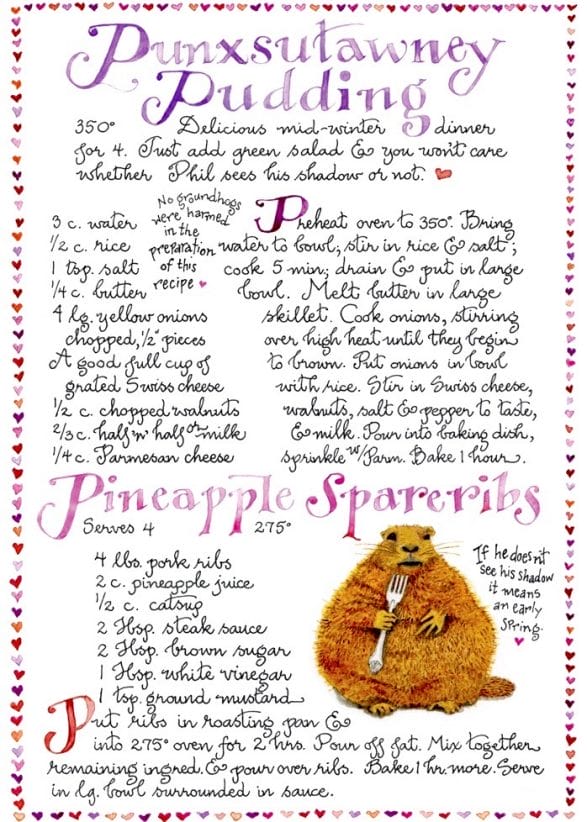 Punxsutawney
Pudding
350° Delicious mid-winter dinner
for 4. Just add green salad & you won't care
whether Phil sees his shadow or not.
No groundhogs
were harmed
in the
preparation
of this
recipe
3 c. water
1/2 c. rice
1 tsp. salt
1/4 c. butter
4 lg. yellow onions
chopped, 1/2" pieces
A good full cup of
grated Swiss cheese
1/2 c. chopped walnuts
2/3 c. half 'n' half or milk
1/4 c. Parmesan cheese
Preheat oven to 350°. Bring
water to bowl; stir in rice & salt;
cook 5 min; drain & put in large
bowl. Melt butter in large
skillet. Cook onions, stirring
over high heat until they begin
to brown. Put onions in bowl
with rice. Stir in Swiss cheese,
walnuts, salt & pepper to taste,
& milk. Pour into baking dish,
sprinkle w/Parm. Bake 1 hour.
Pineapple Spareribs
Serves 4 275°
4 lbs. pork ribs
2 c. pineapple juice
1/2 c. catsup
2 Tbsp. steak sauce
2 Tbsp. brown sugar
1 Tbsp. white vinegar
1 tsp. ground mustard
If he doesn't
see his shadow
it means
an early
Spring.
Put ribs in roasting pan &
into 275° oven for 2 hrs. Pour off fat. Mix together
remaining ingred. & pour over ribs. Bake 1 hr. more. Serve
in lg. bowl surrounded in sauce.